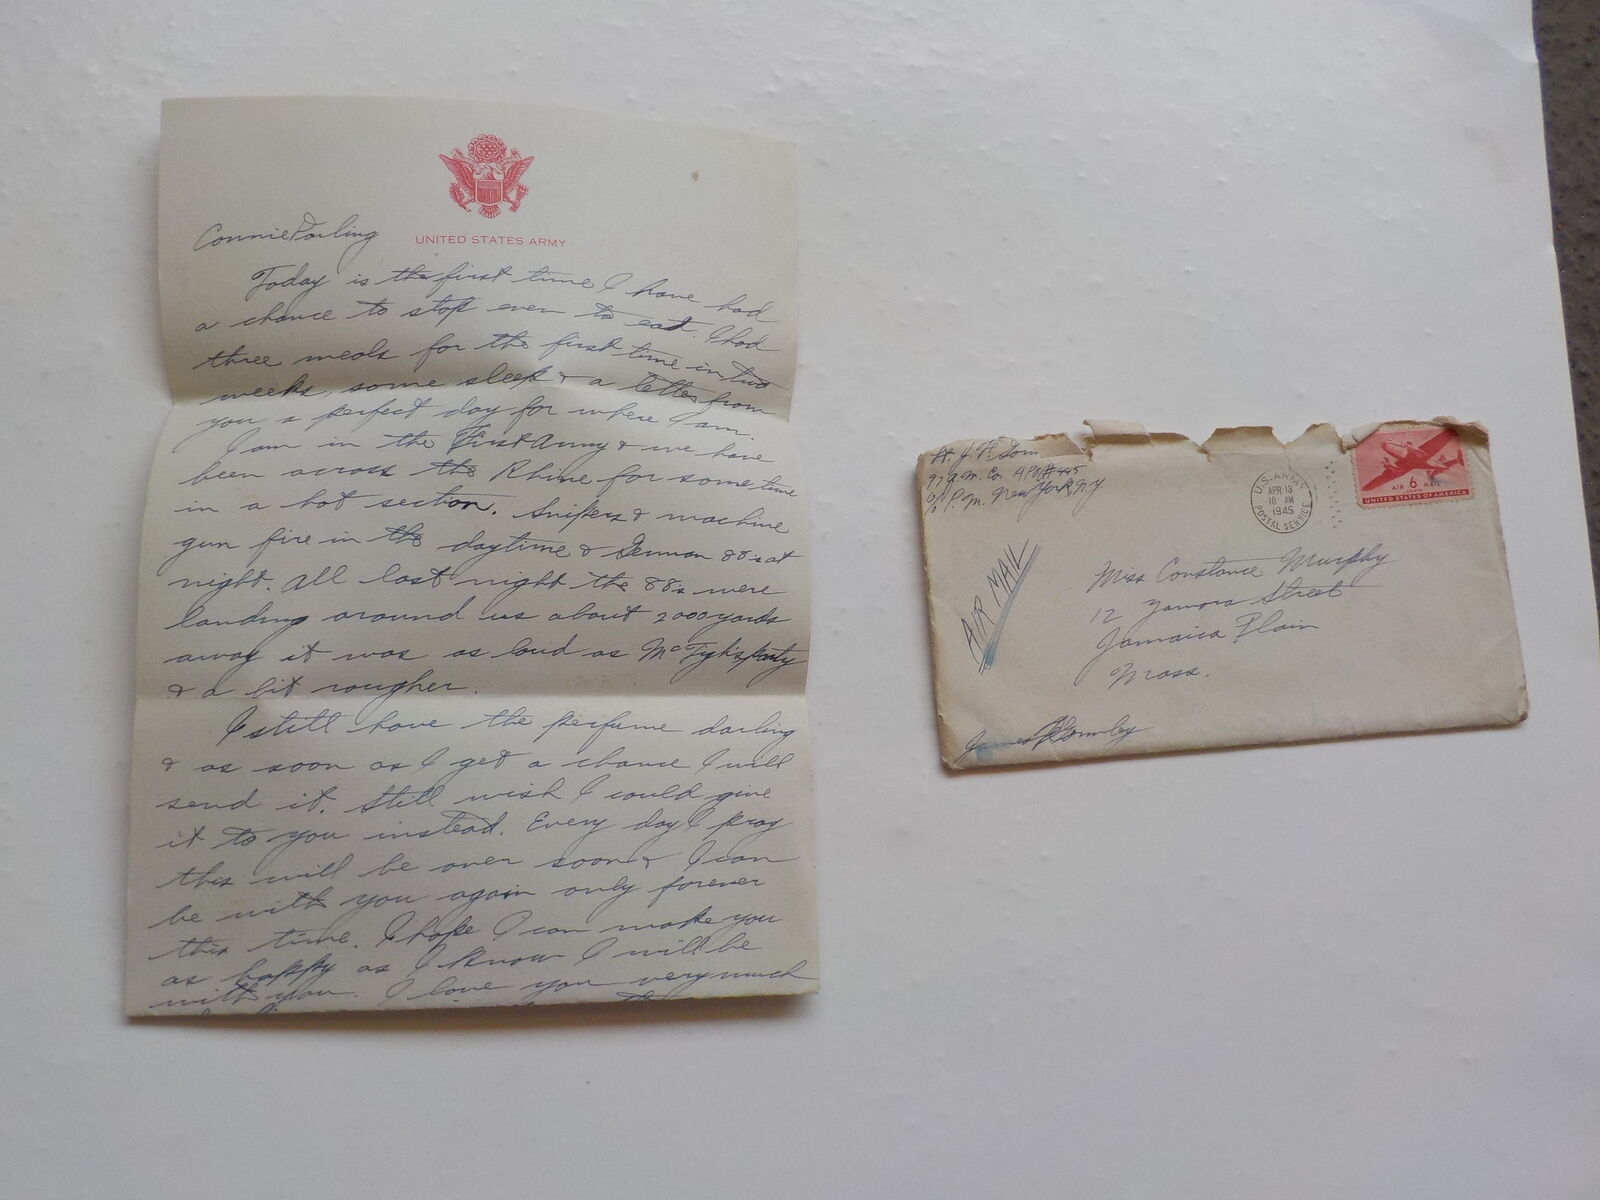 UNITED STATES ARMY
Connie Darling
Today is the first time I have had
a chance to stop even to eat. I had
three meals for the first time in two
weeks, some sleep & a letter from
you a perfect day for where I am.
I am in the First Army & we have
been across the Rhine for some time
in a hot section. Snipers & machine
gun fire in the daytime & German 88's at
night. All last night the 88s were
landing around us about 2000 yards
away it was as loud as McTigh's party
& a bit rougher.
I still have the perfume darling
& as soon as I get a chance I will
send it. Still wish I could give
it to you instead. Every day I pray
this will be over soon & I can
be with you again only forever
this time. I hope I can make you
as happy as I know I will be
with you. I love you very much
Lt. J. P. Gorm
97 Q.M. Co. APO #445
c/o P.M. New York, N.Y
U.S. ARMY
APR 13
10 AM
1945
POSTAL SERVICE
AIR 6 MAIL
CENTS
UNITED STATES OF AMERICA
AIR MAIL
Miss Constance Murphy
12 Zamora Street
Jamaica Plain
Mass.
James P Gormley